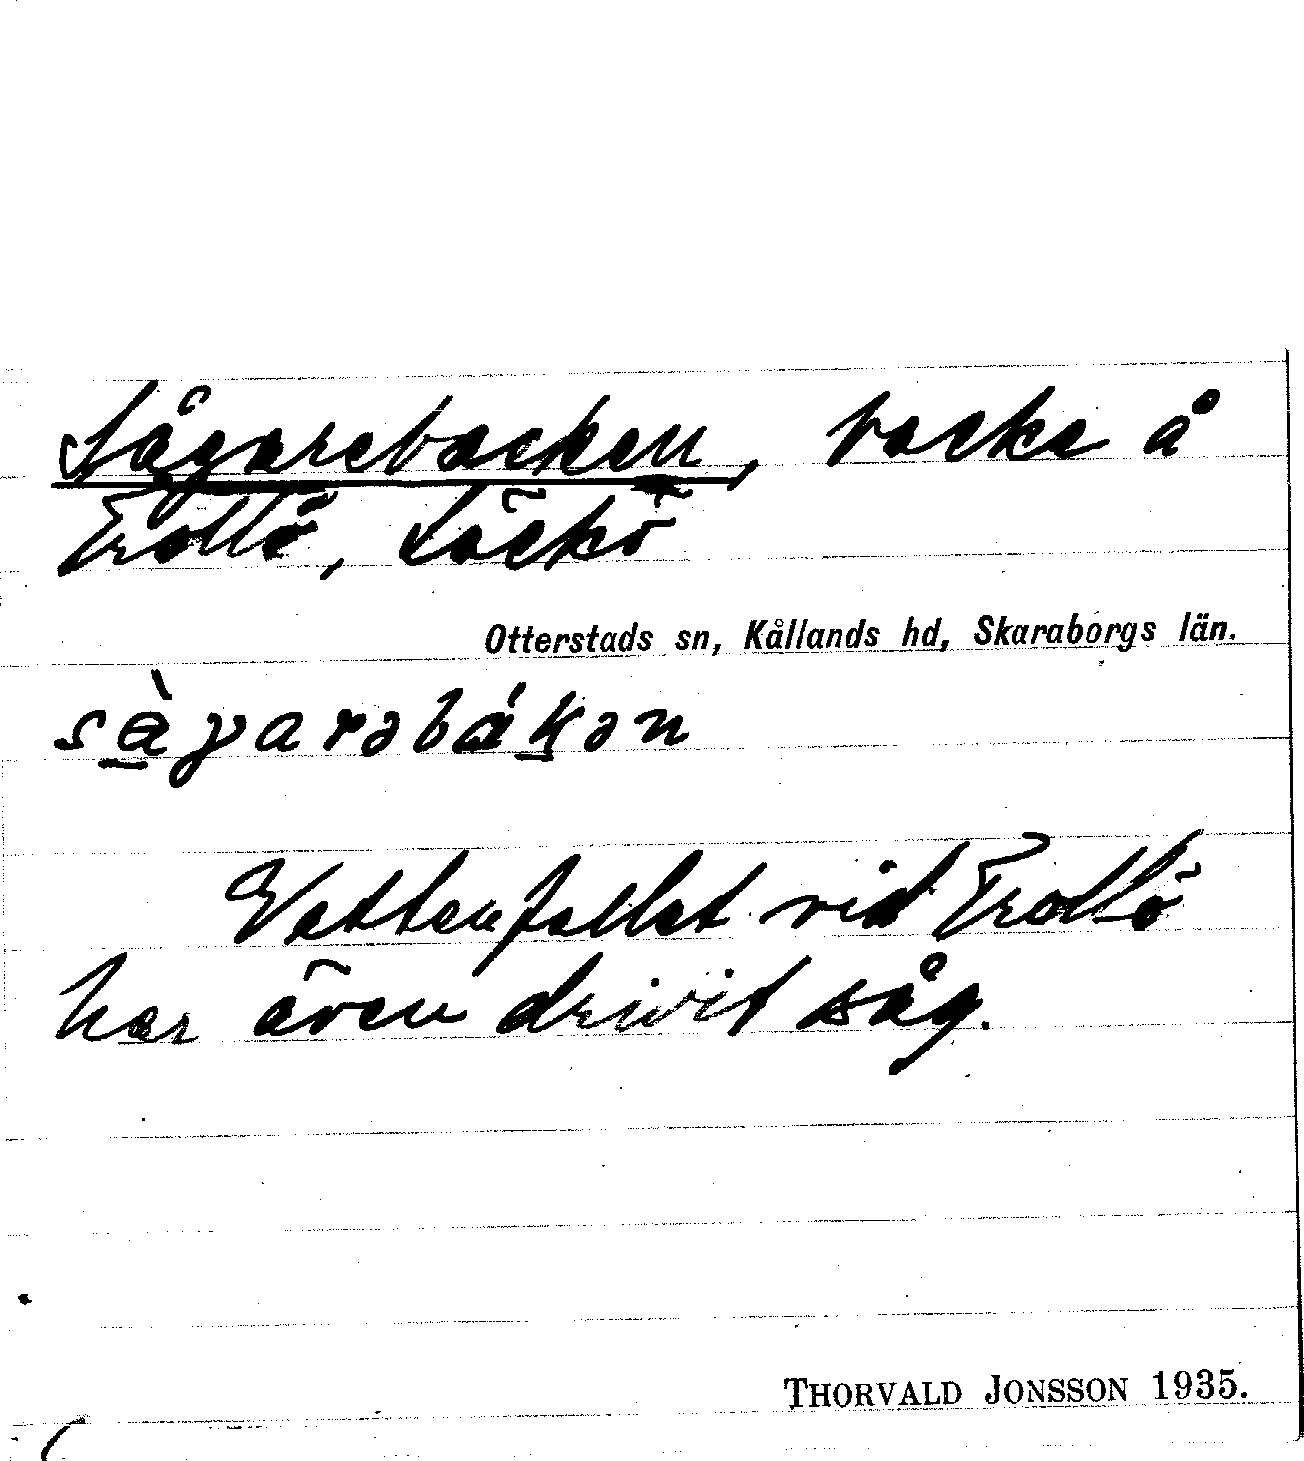 Sågarebacken, backe å
Trollö, Läckö
Otterstads sn, Kållands hd, Skaraborgs län.
sàgarəbákən
Vattenfallet vid Trollö
har även drivit såg.
THORVALD JONSSON 1935.